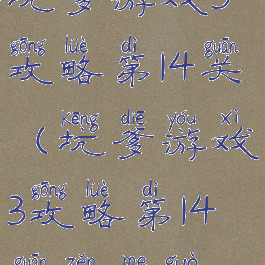 gōng lüè dì guān
攻略第14关
kēng diē yóu xì
(坑爹游戏
gōng lüè dì
3攻略第14
guān zěn me guò